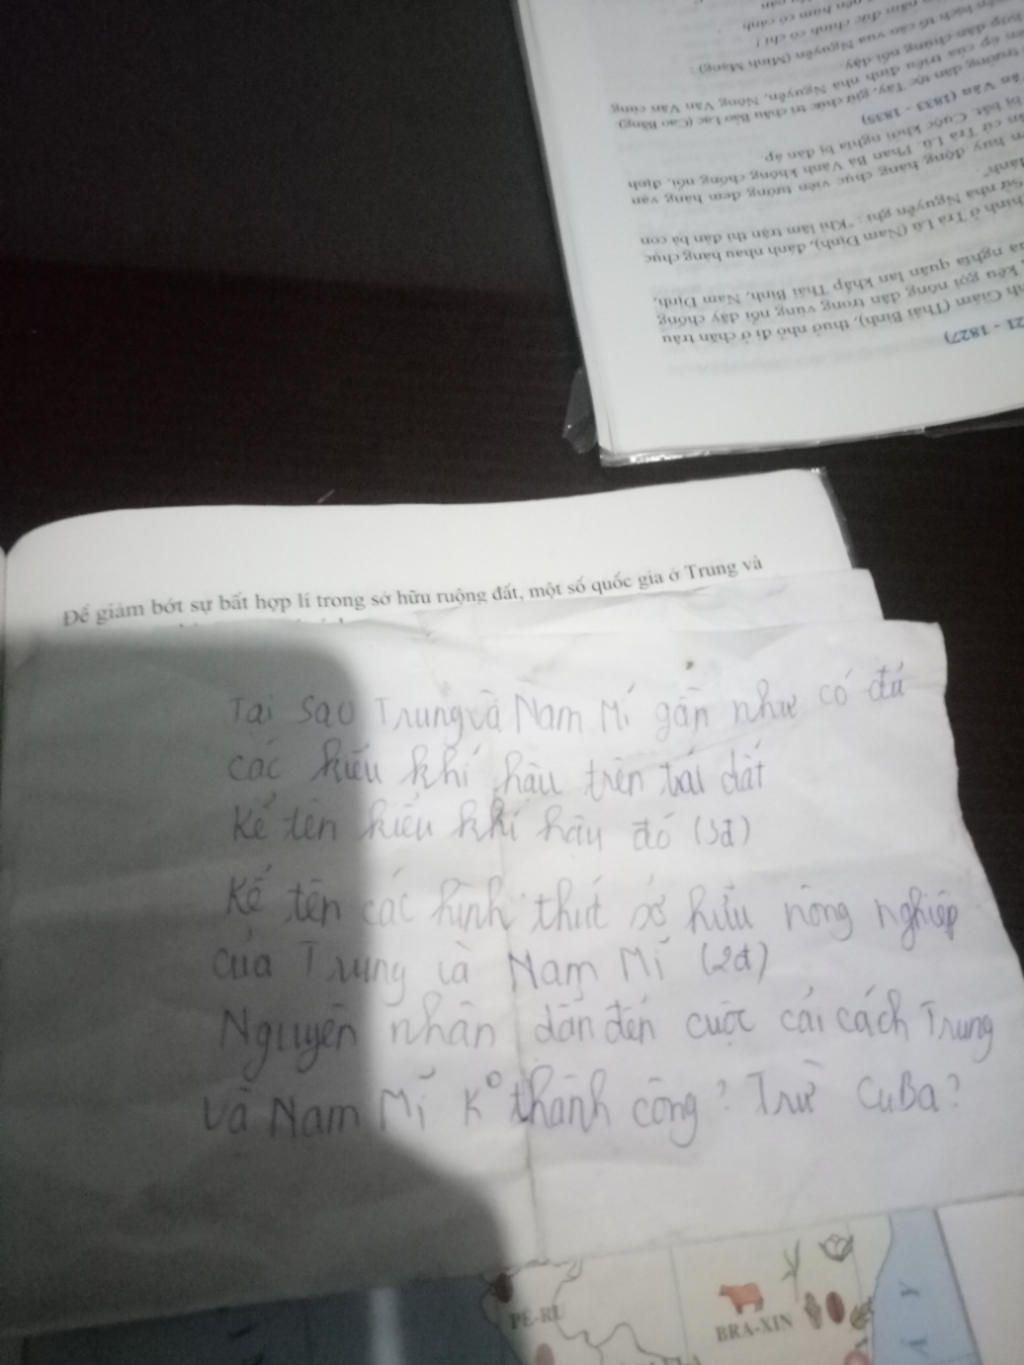 21 - 1827)
nh Giám (Thái Bình), thuở nhỏ đi ở chăn trâu
kêu gọi nông dân trong vùng nổi dậy chống
nghĩa quân lan khắp Thái Bình, Nam Định,
chính ở Trà Lũ (Nam Định), đánh nhau hàng chục
Sử nhà Nguyễn ghi : "Khi lâm trận thì đàn bà con
đánh"
huy động hàng chục viên tướng đem hàng vạn
cứ Trà Lũ. Phan Bá Vành không chống nổi, định
bị bắt. Cuộc khởi nghĩa bị đàn áp.
Văn Vân (1833 - 1835)
trưởng dân tộc Tày, giữ chức tri châu Bảo Lạc (Cao Bằng).
ép của triều đình nhà Nguyễn, Nông Văn Vân cùng
dân chúng nổi dậy.
hịch tố cáo vua Nguyễn (Minh Mạng) :
năm đức chính có chi !
Để giảm bớt sự bất hợp lí trong sở hữu ruộng đất, một số quốc gia ở Trung và
Tại sao Trung và Nam Mĩ gần như có đủ
các kiểu khí hậu trên trái đất
Kể tên kiểu khí hậu đó (3đ)
Kể tên các hình thứt sở hữu nông nghiệp
của Trung và Nam Mĩ (2đ)
Nguyên nhân dẫn đến cuộc cải cách Trung
và Nam Mĩ K° thành công? Trừ CuBa?
PÊ-RU
BRA-XIN